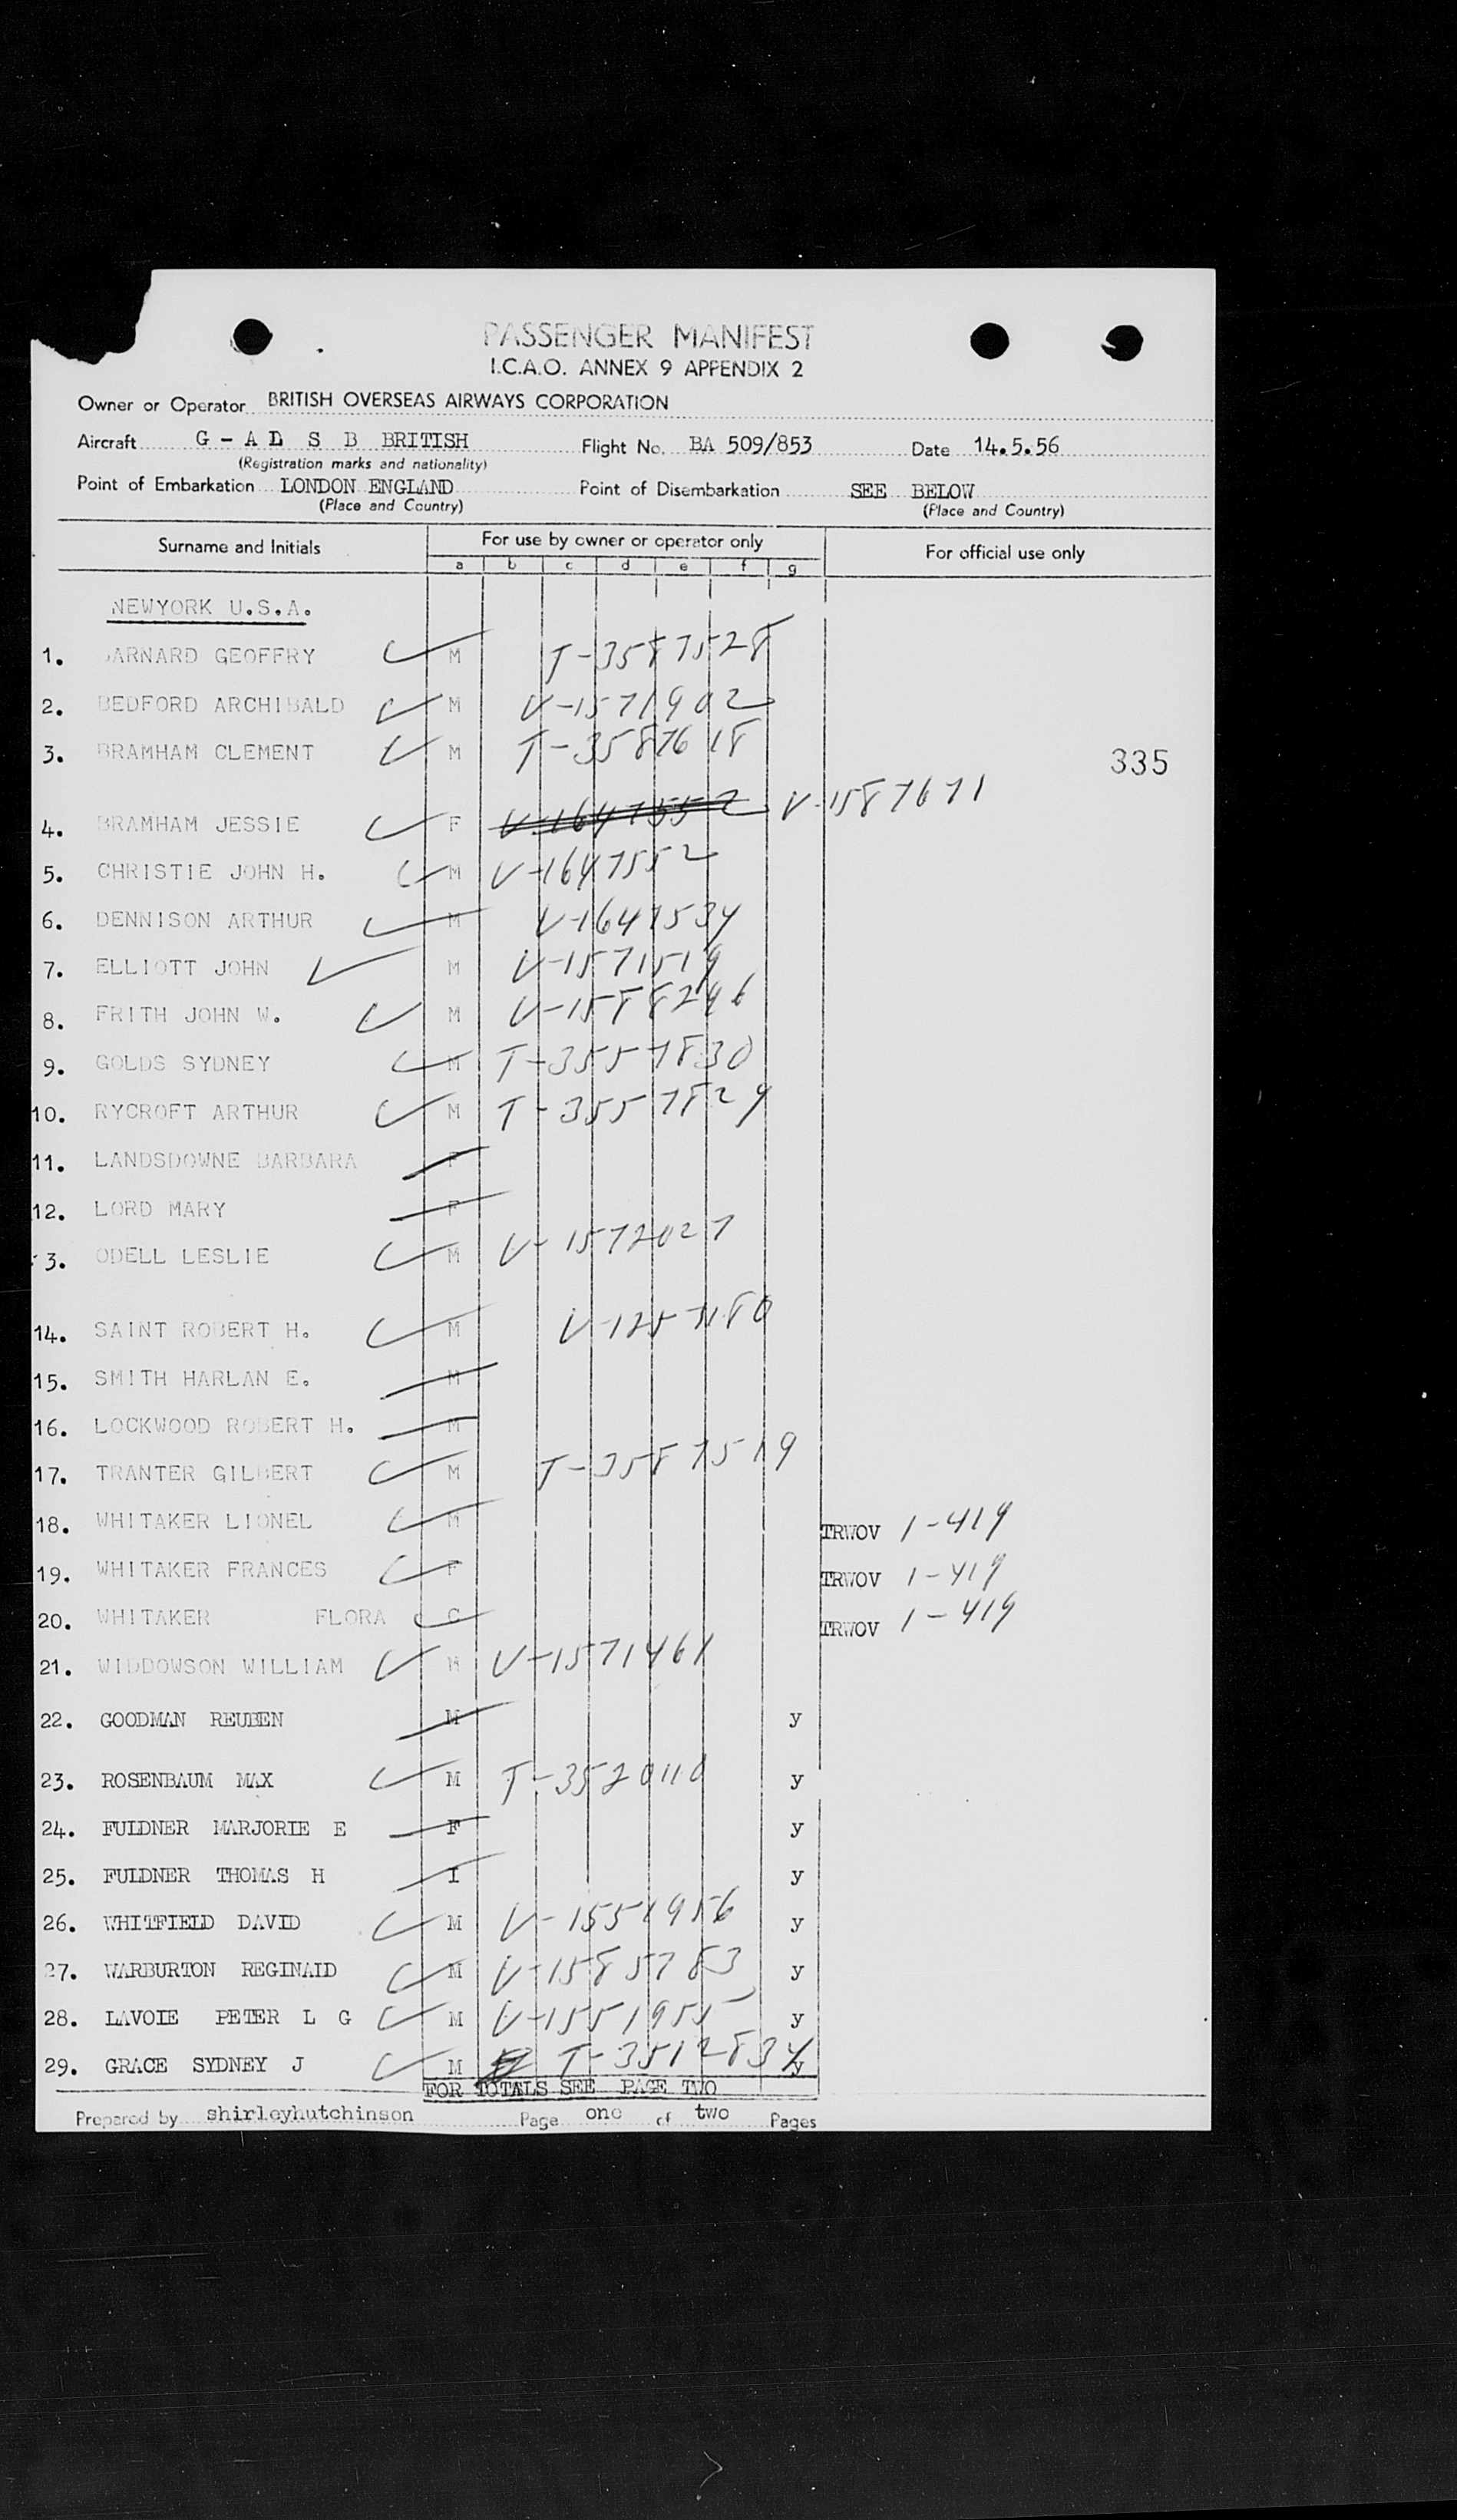 PASSENGER MANIFEST
I.C.A.O. ANNEX 9 APPENDIX 2
Owner or Operator BRITISH OVERSEAS AIRWAYS CORPORATION
Aircraft G - A L S B BRITISH Flight No. BA 509/853 Date 14.5.56
(Registration marks and nationality)
Point of Embarkation LONDON ENGLAND Point of Disembarkation SEE BELOW
(Place and Country) (Place and Country)
Surname and Initials For use by owner or operator only For official use only
a b c d e f g
NEWYORK U.S.A.
1. BARNARD GEOFFRY M T-3587528
2. BEDFORD ARCHIBALD M V-1571902
3. BRAMHAM CLEMENT M T-3587618
335
4. BRAMHAM JESSIE F V-1647552 V-1587671
5. CHRISTIE JOHN H. M V-1647552
6. DENNISON ARTHUR M V-1647534
7. ELLIOTT JOHN M V-1571519
8. FRITH JOHN W. M V-1588296
9. GOLDS SYDNEY M T-3557830
10. RYCROFT ARTHUR M T-3557829
11. LANDSDOWNE BARBARA F
12. LORD MARY F
13. ODELL LESLIE M V-1572027
14. SAINT ROBERT H. M
15. SMITH HARLAN E. M
16. LOCKWOOD ROBERT H. M
17. TRANTER GILBERT M T-3587519
18. WHITAKER LIONEL M TRWOV 1-419
19. WHITAKER FRANCES F TRWOV 1-419
20. WHITAKER FLORA C TRWOV 1-419
21. WIDDOWSON WILLIAM M V-1571461
22. GOODMAN REUBEN M y
23. ROSENBAUM MAX M T-3520110 y
24. FULDNER MARJORIE E F y
25. FULDNER THOMAS H I y
26. WHITFIELD DAVID M V-1551956 y
27. WARBURTON REGINALD M V-1585783 y
28. LAVOIE PETER L G M V-1551955 y
29. GRACE SYDNEY J M T-3512834 y
FOR TOTALS SEE PAGE TWO
Prepared by shirleyhutchinson Page one of two Pages